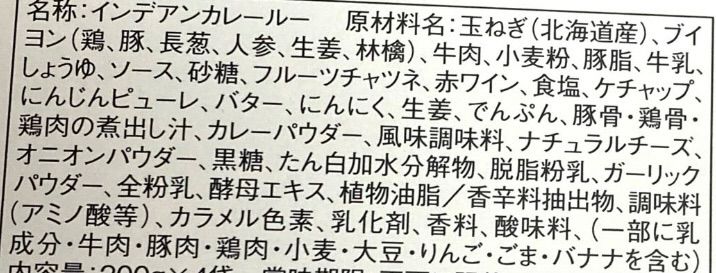 名称:インデアンカレールー　原材料名:玉ねぎ(北海道産)、ブイ
ヨン(鶏、豚、長葱、人参、生姜、林檎)、牛肉、小麦粉、豚脂、牛乳、
しょうゆ、ソース、砂糖、フルーツチャツネ、赤ワイン、食塩、ケチャップ、
にんじんピューレ、バター、にんにく、生姜、でんぷん、豚骨・鶏骨・
鶏肉の煮出し汁、カレーパウダー、風味調味料、ナチュラルチーズ、
オニオンパウダー、黒糖、たん白加水分解物、脱脂粉乳、ガーリック
パウダー、全粉乳、酵母エキス、植物油脂/香辛料抽出物、調味料
(アミノ酸等)、カラメル色素、乳化剤、香料、酸味料、(一部に乳
成分・牛肉・豚肉・鶏肉・小麦・大豆・りんご・ごま・バナナを含む)
内容量:200g×4袋